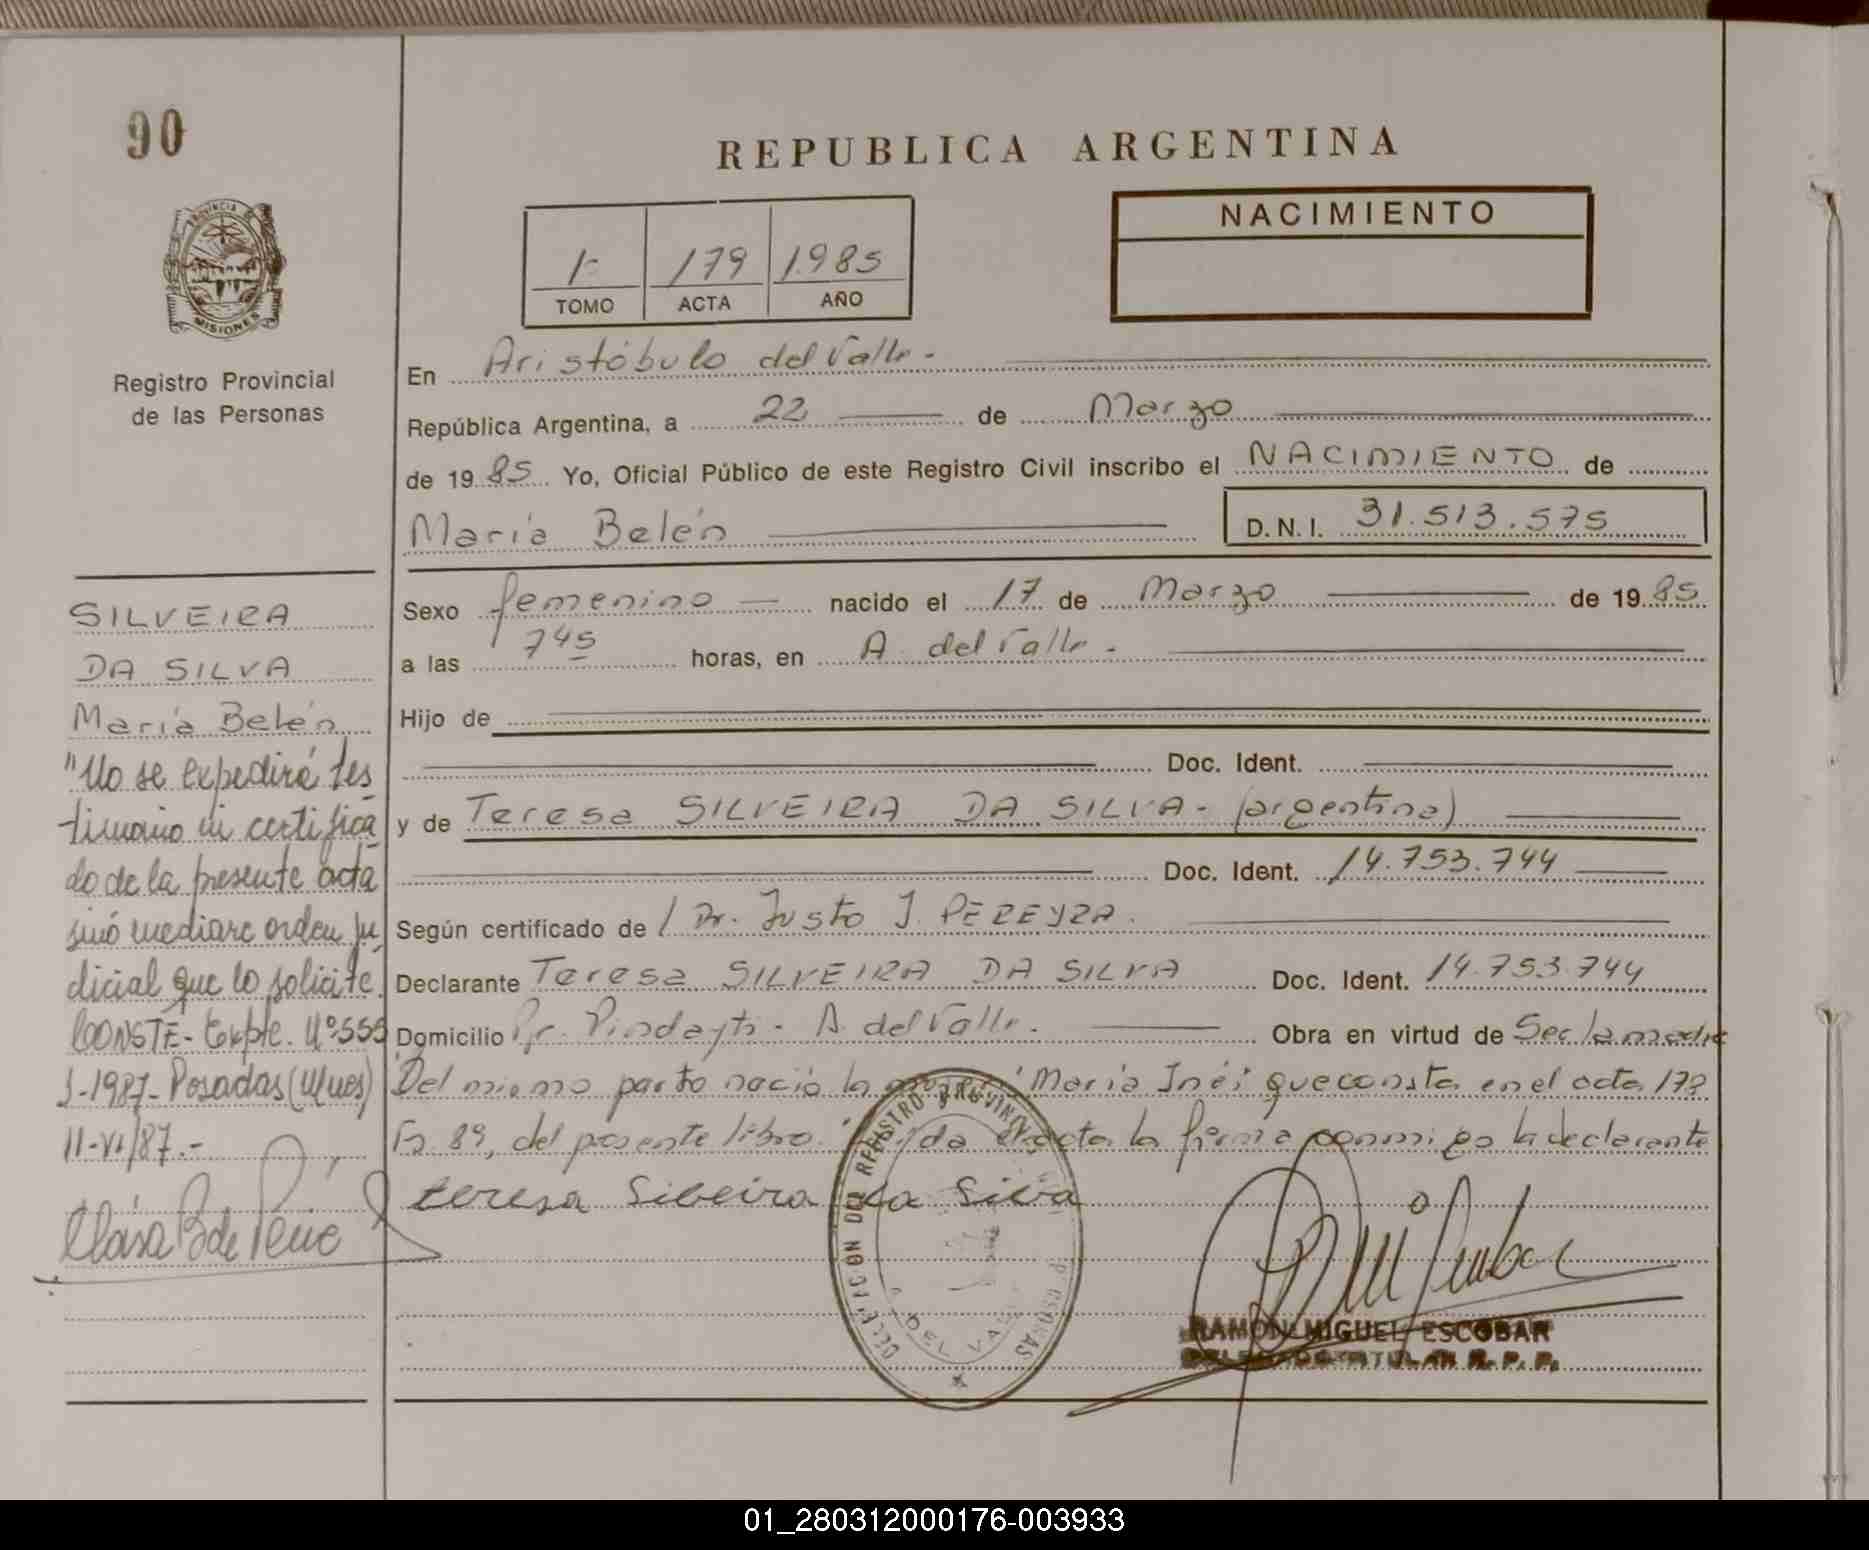 90
REPUBLICA ARGENTINA
PROVINCIA DE
MISIONES
Registro Provincial
de las Personas
1- 179 1985
TOMO ACTA AÑO
NACIMIENTO
En Aristóbulo del Valle.
República Argentina, a 22 de Marzo
de 1985 Yo, Oficial Público de este Registro Civil inscribo el NACIMIENTO de
María Belén D.N.I. 31.513.575
Sexo femenino nacido el 17 de Marzo de 1985
a las 745 horas, en A. del Valle.
Hijo de
Doc. Ident.
y de Teresa SILVEIRA DA SILVA - (argentina)
Doc. Ident. 14.753.744
Según certificado de Dr. Justo J. PEREYRA.
Declarante Teresa SILVEIRA DA SILVA Doc. Ident. 14.753.744
Domicilio Pindayti - A. del Valle. Obra en virtud de Ser la madre
Del mismo parto nació la María Inés que consta en el acta 178
Fo. 89, del presente libro. el acta la firma conmigo la declarante
teresa Silveira da Silva
SILVEIRA
DA SILVA
María Belén
"No se expedirá tes
timonio ni certifica
do de la presente acta
sinó mediare orden ju
dicial que lo solicite.
CONSTE - Expte. Nº 555
J-1987- Posadas (Mnes)
11-VI/87.-
DELEGACION DEL REGISTRO PROVINCIAL PERSONAS
DEL VALLE
RAMON MIGUEL ESCOBAR
DELEGADO TITULAR R. P. P.
01_280312000176-003933